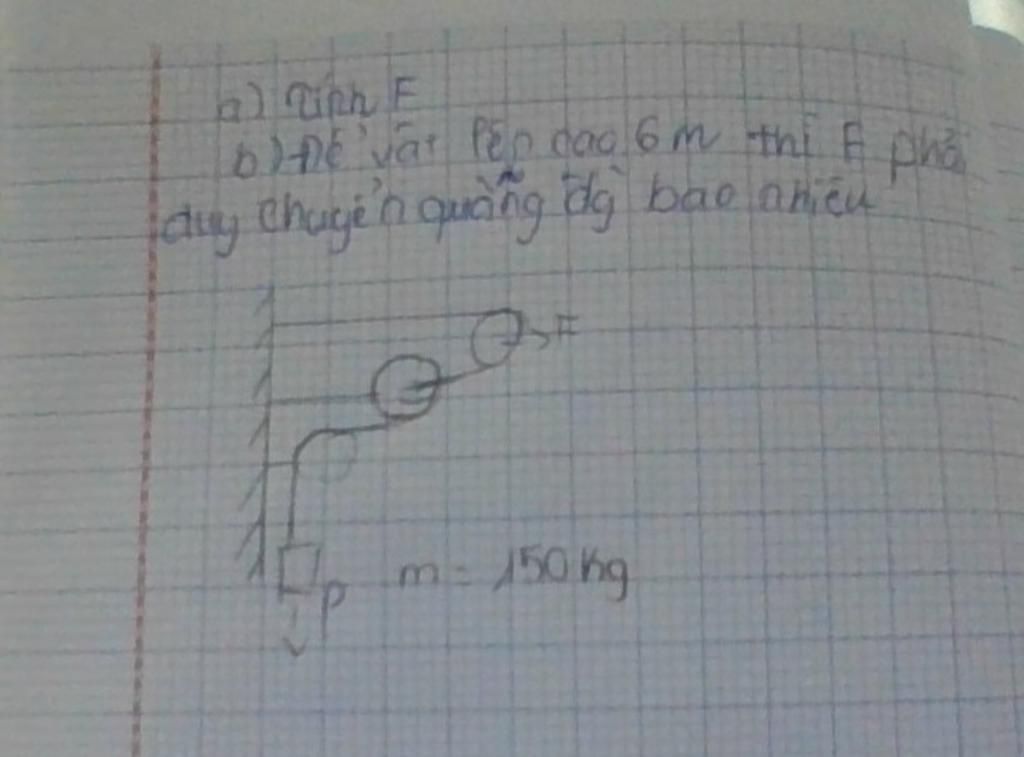 a) Tính F
b) Để vật lên cao 6m thì F phải
duy chuyển quãng đg bao nhiêu
F
P m = 150kg